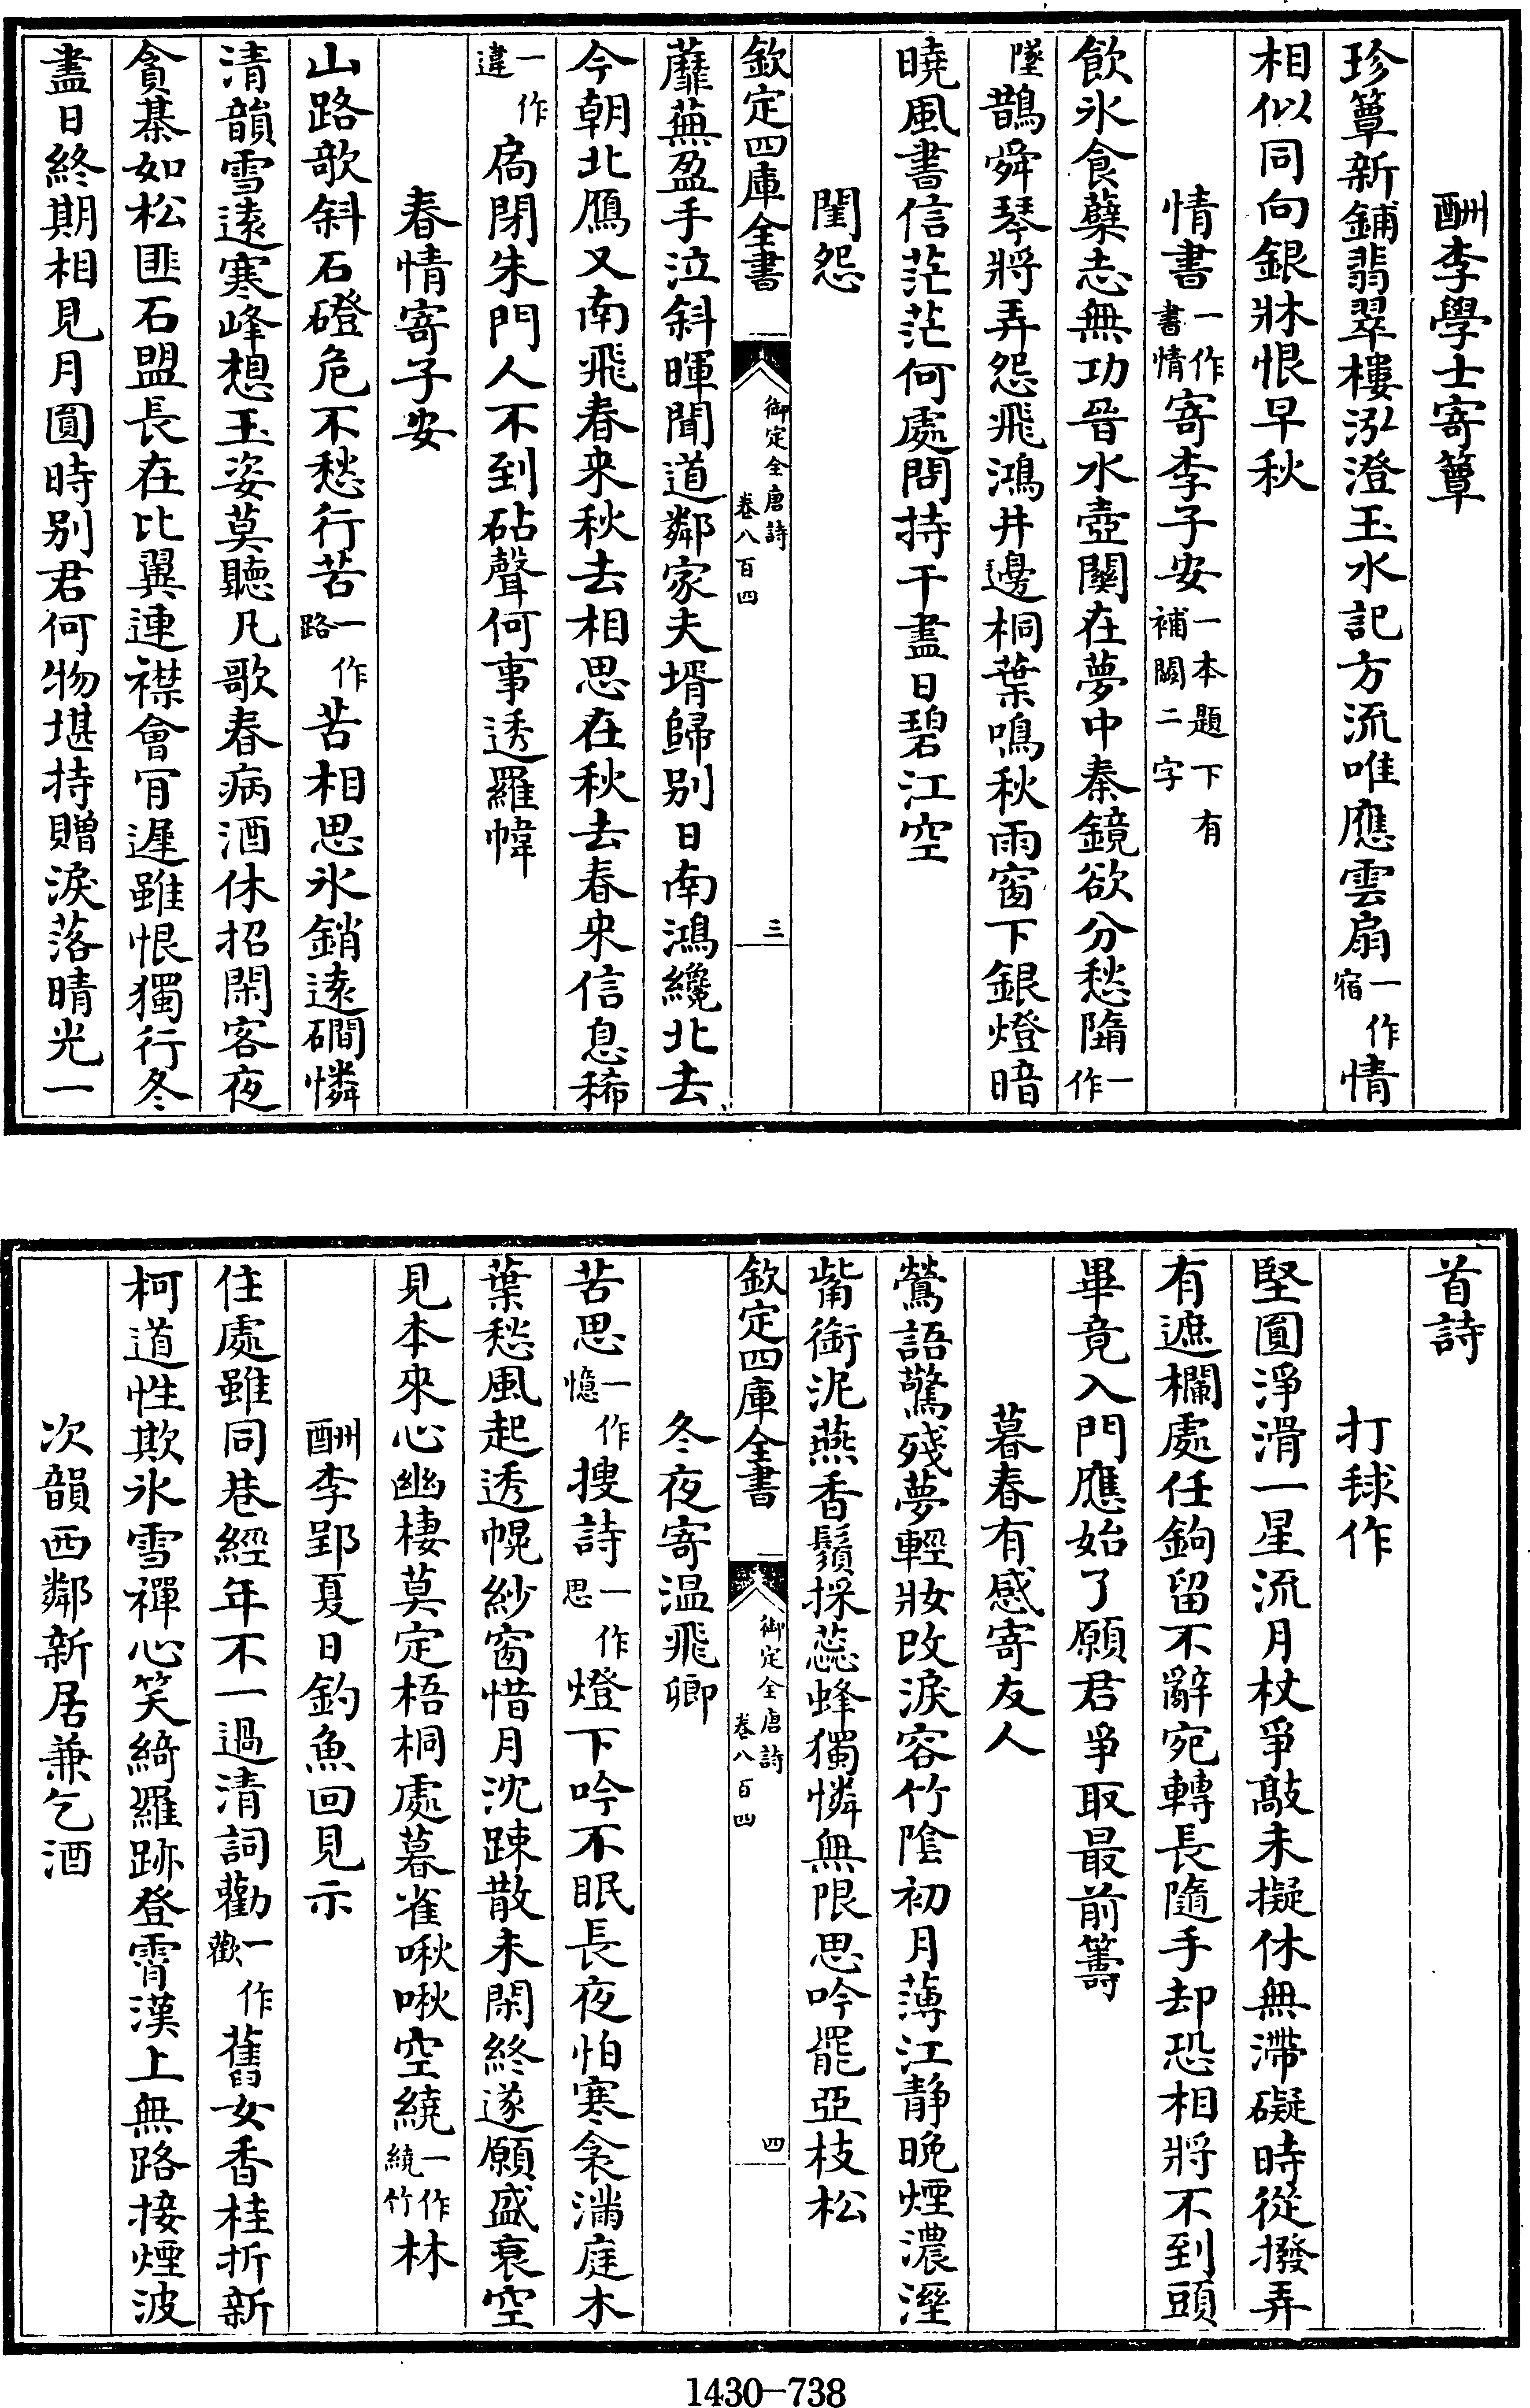 酬李學士寄簟
珍簟新鋪翡翠樓泓澄玉水記方流唯應雲扇一作宿情
相似同向銀牀恨早秋
情書一作書情寄李子安一本題下有補闕二字
飲氷食蘗志無功晉水壺關在夢中秦鏡欲分愁隋一作
墜鵲舜琴將弄怨飛鴻井邊桐葉鳴秋雨窗下銀燈暗
曉風書信茫茫何處問持干盡日碧江空
閨怨
欽定四庫全書
御定全唐詩
卷八百四
三
蘼蕪盈手泣斜暉聞道鄰家夫壻歸别日南鴻纔北去
今朝北鴈又南飛春來秋去相思在秋去春來信息稀
一作違扃閉朱門人不到砧聲何事透羅幃
春情寄子安
山路欹斜石磴危不愁行苦一作路苦相思氷銷遠磵憐
清韻雪遠寒峰想玉姿莫聽凡歌春病酒休招閑客夜
貪棊如松匪石盟長在比翼連襟會肎遲雖恨獨行冬
盡日終期相見月圓時别君何物堪持贈淚落晴光一
首詩
打毬作
堅圓淨滑一星流月杖爭敲未擬休無滯礙時從撥弄
有遮欄處任鉤留不辭宛轉長隨手却恐相將不到頭
畢竟入門應始了願君爭取最前籌
暮春有感寄友人
鶯語驚殘夢輕妝改淚容竹陰初月薄江静晚煙濃溼
觜銜泥燕香鬚採蕊蜂獨憐無限思吟罷亞枝松
欽定四庫全書
御定全唐詩
卷八百四
四
冬夜寄温飛卿
苦思一作憶搜詩一作思燈下吟不眠長夜怕寒衾滿庭木
葉愁風起透幌紗窗惜月沈踈散未閑終遂願盛衰空
見本來心幽棲莫定梧桐處暮雀啾啾空繞一作繞竹林
酬李郢夏日釣魚回見示
住處雖同巷經年不一過清詞勸一作歡舊女香桂折新
柯道性欺氷雪禪心笑綺羅跡登霄漢上無路接煙波
次韻西鄰新居兼乞酒
1430-738